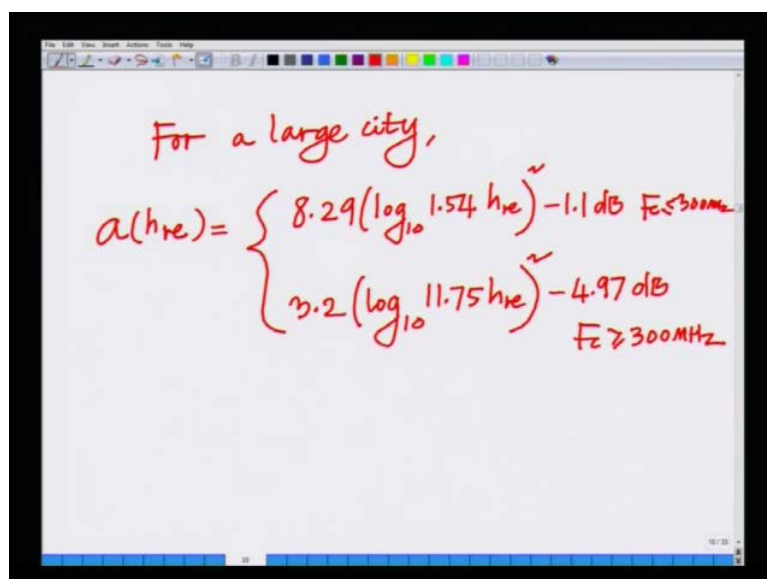 File Edit View Insert Actions Tools Help
For a large city,
a(hre) = { 8.29 (log₁₀ 1.54 hre)² - 1.1 dB Fc ≤ 300MHz
3.2 (log₁₀ 11.75 hre)² - 4.97 dB
Fc ≥ 300MHz